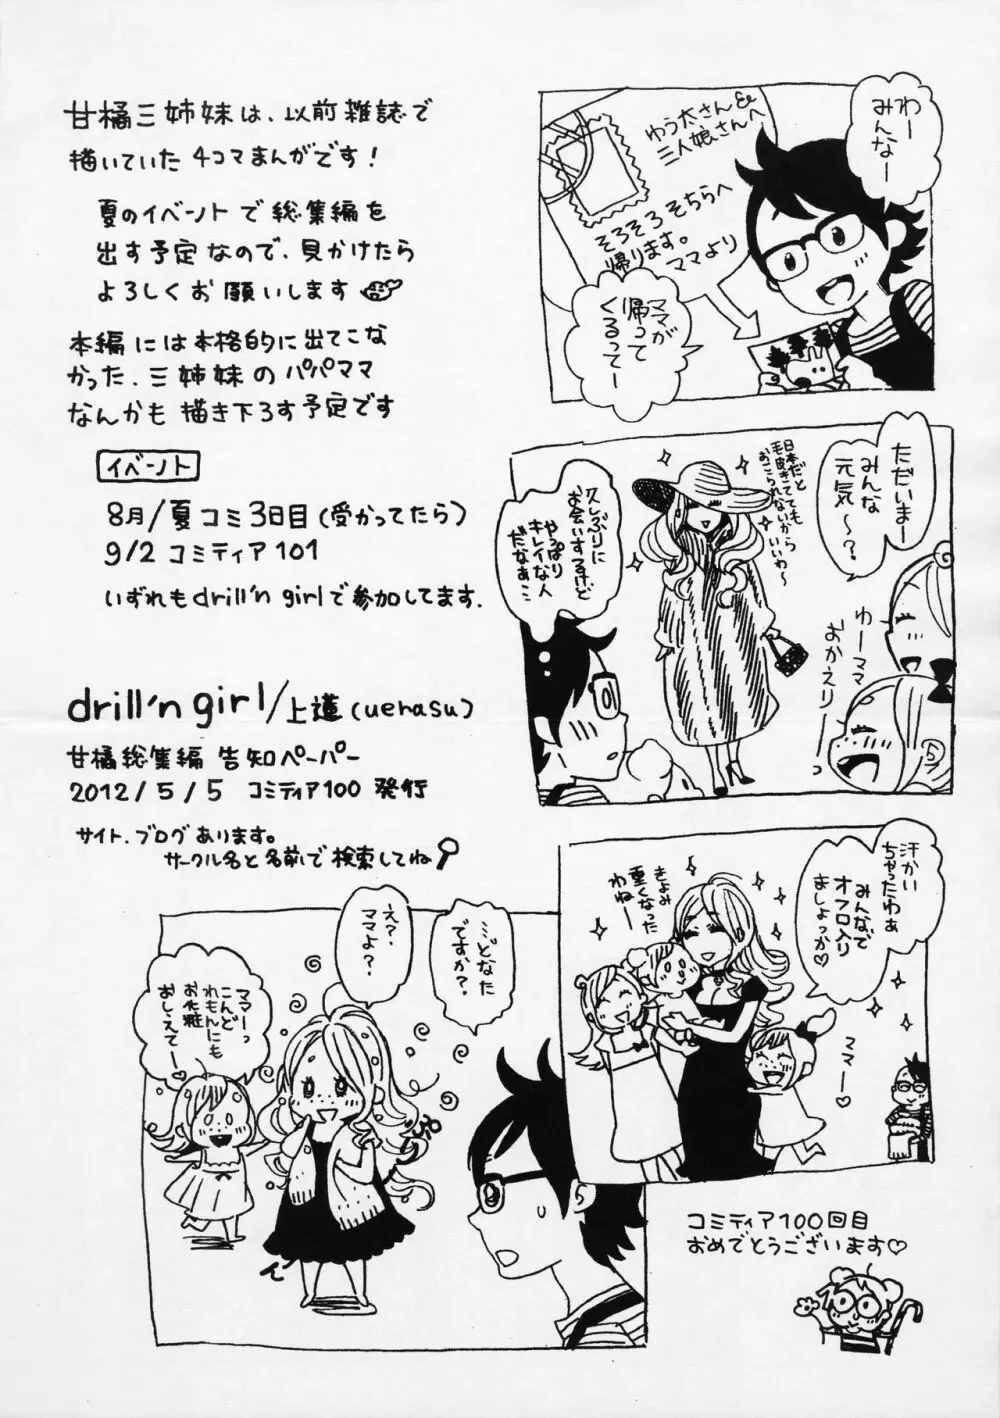 甘橘三姉妹は、以前雑誌で
描いていた4コマまんがです!
夏のイベントで総集編を
出す予定なので、見かけたら
よろしくお願いします
本編には本格的に出てこな
かった、三姉妹のパパママ
なんかも描き下ろす予定です
イベント
8月/夏コミ3日目(受かってたら)
9/2 コミティア101
いずれもdrill'n girlで参加してます.
drill'n girl/上蓮(uerasu)
甘橘総集編 告知ペーパー
2012/5/5 コミティア100 発行
サイト、ブログあります。
サークル名と名前で検索してね
わー
みんなー
ゆう太さん&
三人娘さんへ
そろそろそちらへ
帰ります。
ママより
ママが
帰って
くるってー
ただいまー
みんな
元気~?
日本だと
毛皮きてても
おこられないから
いいわ~
久しぶりに
お会いするけど
やっぱり
キレイな人
だなぁ…
ゆーママ
おかえりーっ
汗かい
ちゃったわぁ
みんなで
オフロ入り
ましょっか♡
きよみ
重くなった
わねー
ママー♡
…どなた
ですか?
え?
ママよ?
ママーっ
こんど
れもんにも
お化粧
おしえてー♡
コミティア100回目
おめでとうございます♡